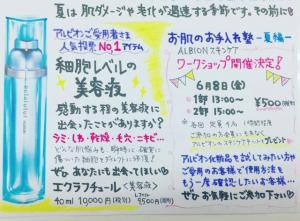 夏は肌ダメージや老化が過速する季節です。その前に
アルビオンご愛用者さま
人気投票No.1アイテム
細胞レベルの
美容液
感動する程の美容液に
出会ったことがありますか?
シミ・くま・乾燥・毛穴・ニキビ…
どんな肌悩みも、瞬時に、確実に
ぜひ あなたにも出会ってほしい
エクラフチュール〈美容液〉
40ml 10,000円(税別)
お肌のお手入れ塾 ー夏編ー
ALBION スキンケア
ワークショップ開催決定!
6月8日(金)
1部 13:00〜
2部 15:00〜
¥500(税別)
アルビオンのスキンケアサンプルプレゼント
アルビオン化粧品を試してみたい方や
ご愛用のお客様で使用方法を
もう一度確認したいお客様…
ぜひお気軽にご参加下さい